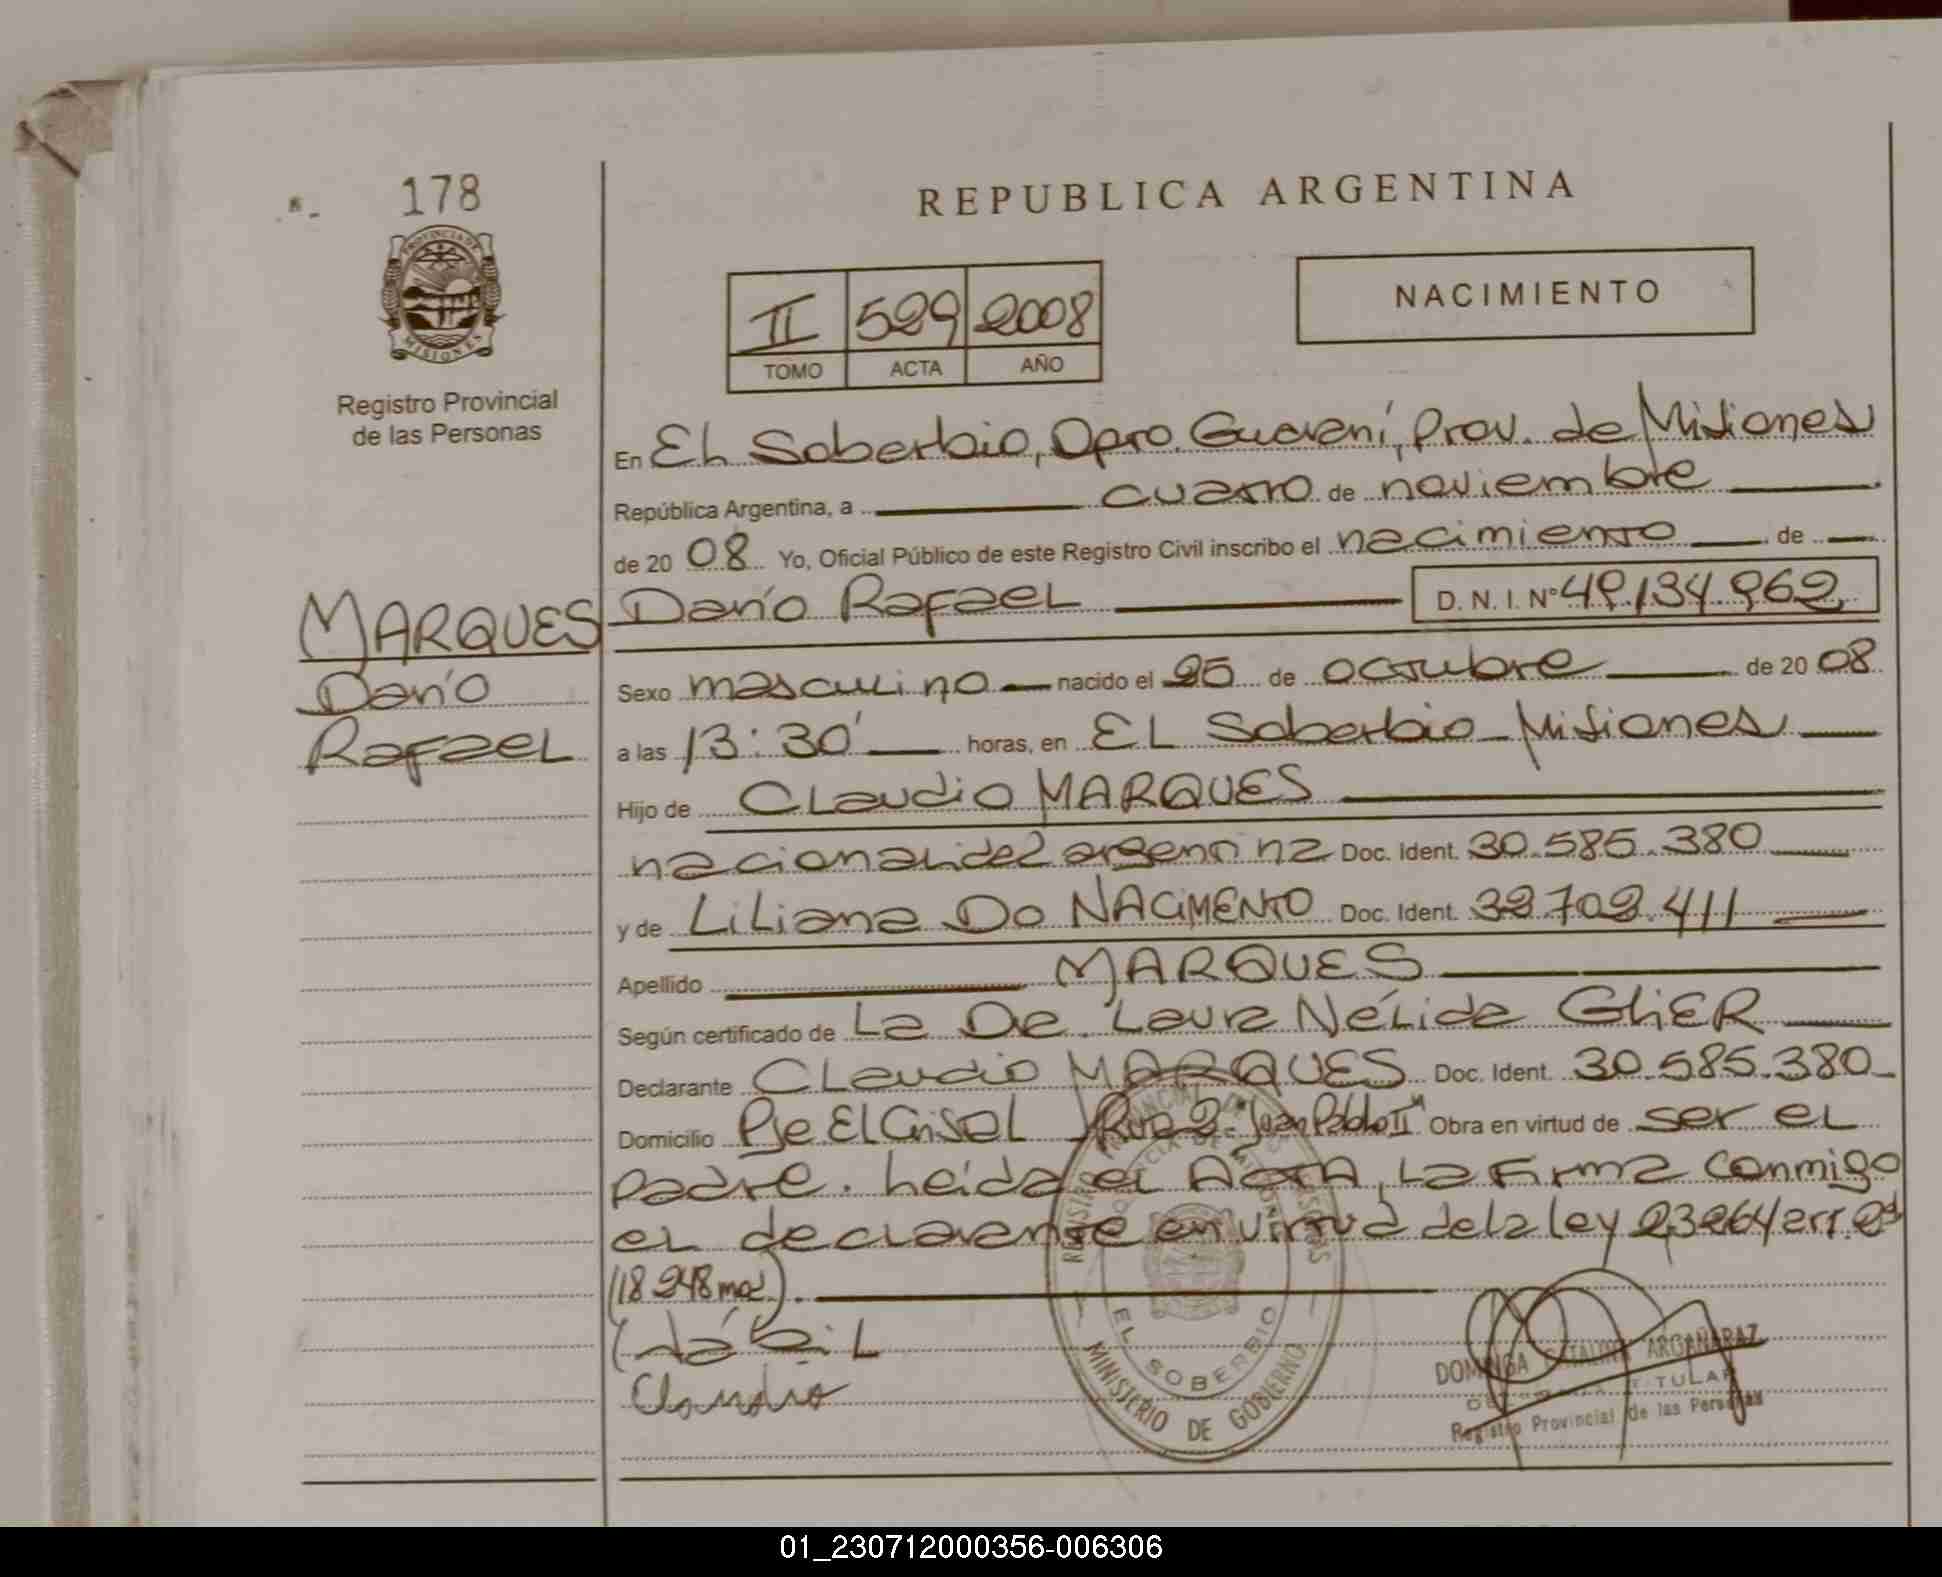 178
PROVINCIA DE
MISIONES
Registro Provincial
de las Personas
REPUBLICA ARGENTINA
II 529 2008
TOMO ACTA AÑO
NACIMIENTO
En El Soberbio, Dpto. Guaraní, Prov. de Misiones
República Argentina, a cuatro de noviembre
de 20 08 Yo, Oficial Público de este Registro Civil inscribo el nacimiento de
MARQUES
Darío
Rafael
Darío Rafael D. N. I. Nº 49.134.962
Sexo masculino nacido el 25 de octubre de 20 08
a las 13:30' horas, en El Soberbio - Misiones
Hijo de Claudio MARQUES
nacionalidad argentina Doc. Ident. 30.585.380
y de Liliana Do NACIMENTO Doc. Ident. 32.702.411
Apellido MARQUES
Según certificado de La De. Laura Nélida GLIER
Declarante Claudio MARQUES Doc. Ident. 30.585.380
Domicilio Pje El Crisol Ruta 2 "Juan Pablo II" Obra en virtud de ser el
padre. Leída el Acta, la firma conmigo
el declarante en virtud de la ley 23264/art. 2º
(18.248 mod).
Claudio
REGISTRO PROVINCIAL DE LAS PERSONAS
PROVINCIA DE MISIONES
EL SOBERBIO
MINISTERIO DE GOBIERNO
DOMINGA CATALINA ARGAÑARAZ
TITULAR
Registro Provincial de las Personas
01_230712000356-006306